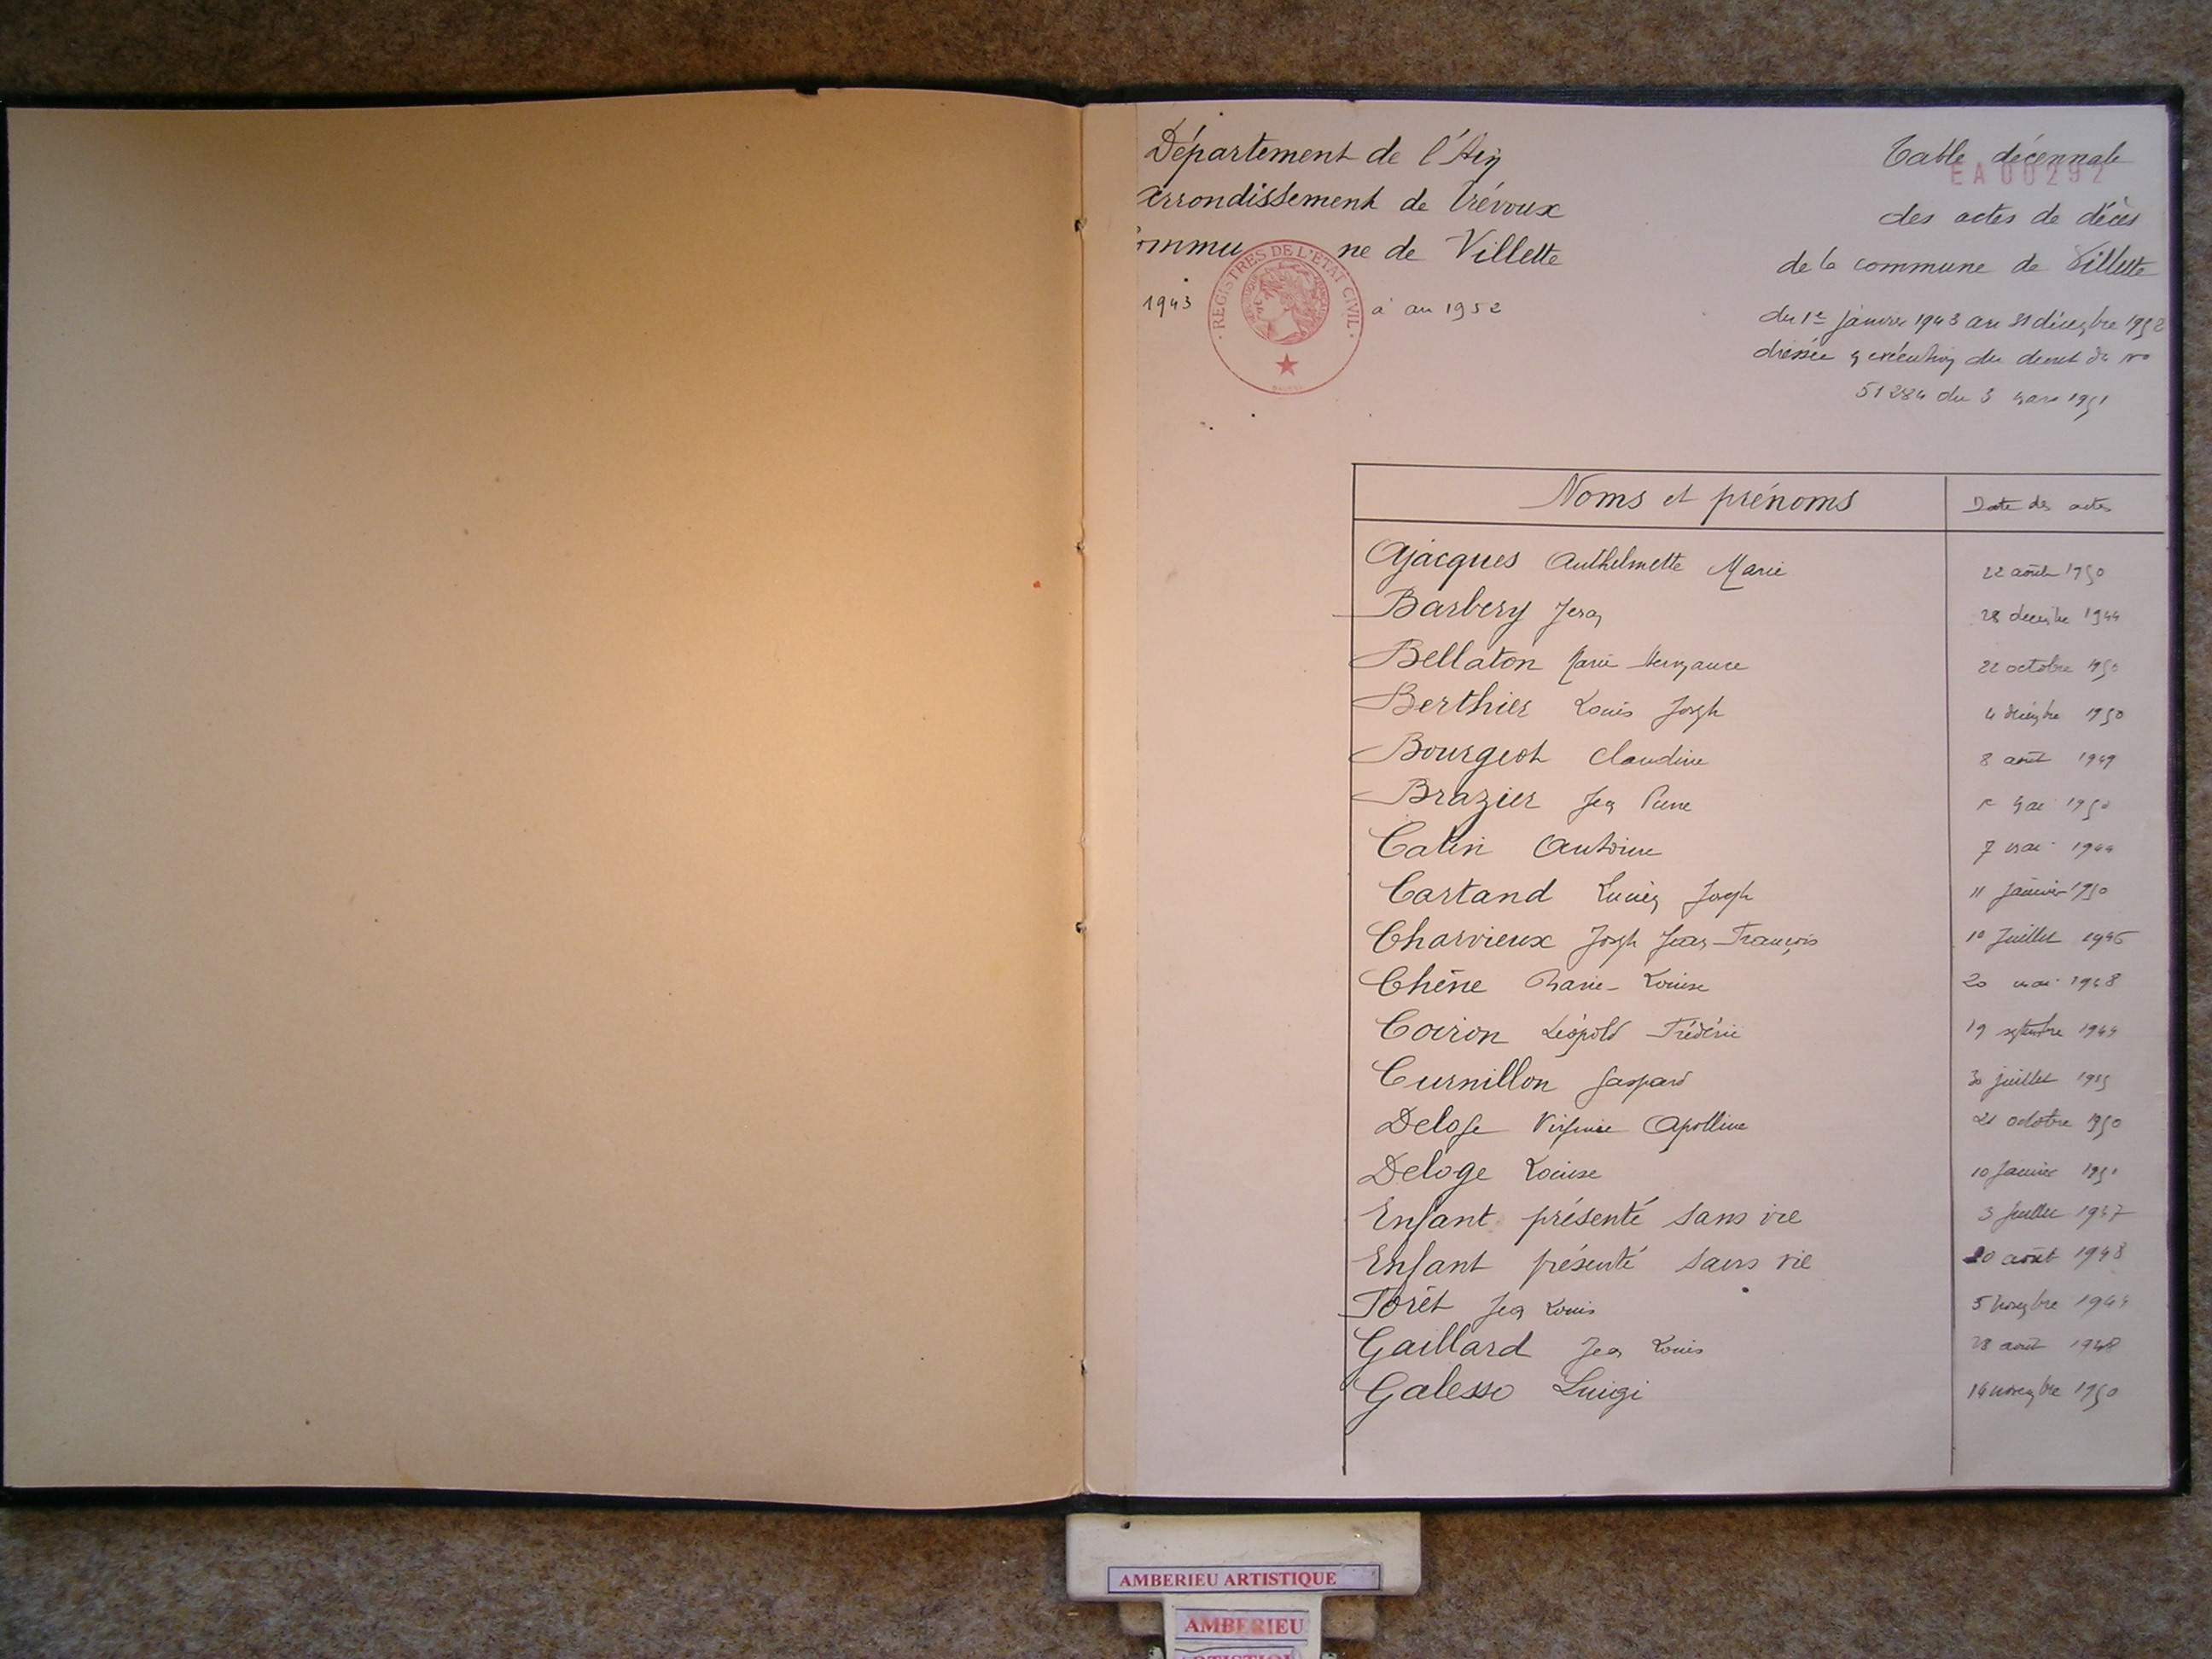 Département de l'Ain
Arrondissement de Trévoux
ommune de Villette
1943 à au 1952
REGISTRES DE L'ETAT CIVIL
Table décennale
EA00292
des actes de décès
de la commune de Villette
du 1er janvier 1943 au 31 décembre 1952
dressée en exécution du decret du no
51284 du 3 mars 1951
Noms et prénoms Date des actes
Ajacques Anthelmette Marie 22 août 1950
Barbery Jean 28 decembre 1944
Bellaton Marie 22 octobre 1950
Berthier Louis Joseph 4 décembre 1950
Bourgeot Claudine 8 août 1949
Brazier Jean Pierre 1er mai 1950
Catin Antoine 7 mai 1944
Cartand Lucien Joseph 11 janvier 1950
Charvieux Joseph Jean-François 10 Juillet 1946
Chêne Marie-Louise 20 mai 1948
Coiron Léopold Frédéric 19 septembre 1944
Curnillon Gaspard 30 juillet
Deloge Virginie Apolline 21 octobre 1950
Deloge Louise 10 Janvier 1951
Enfant présenté sans vie 3 Juillet 1947
Enfant présenté sans vie 20 août 1948
Forêt Jean Louis 5 novembre 1944
Gaillard Jean Louis 28 août 1948
Galesso Luigi 14 novembre 1950
AMBERIEU ARTISTIQUE
AMBERIEU
ARTISTIQUE